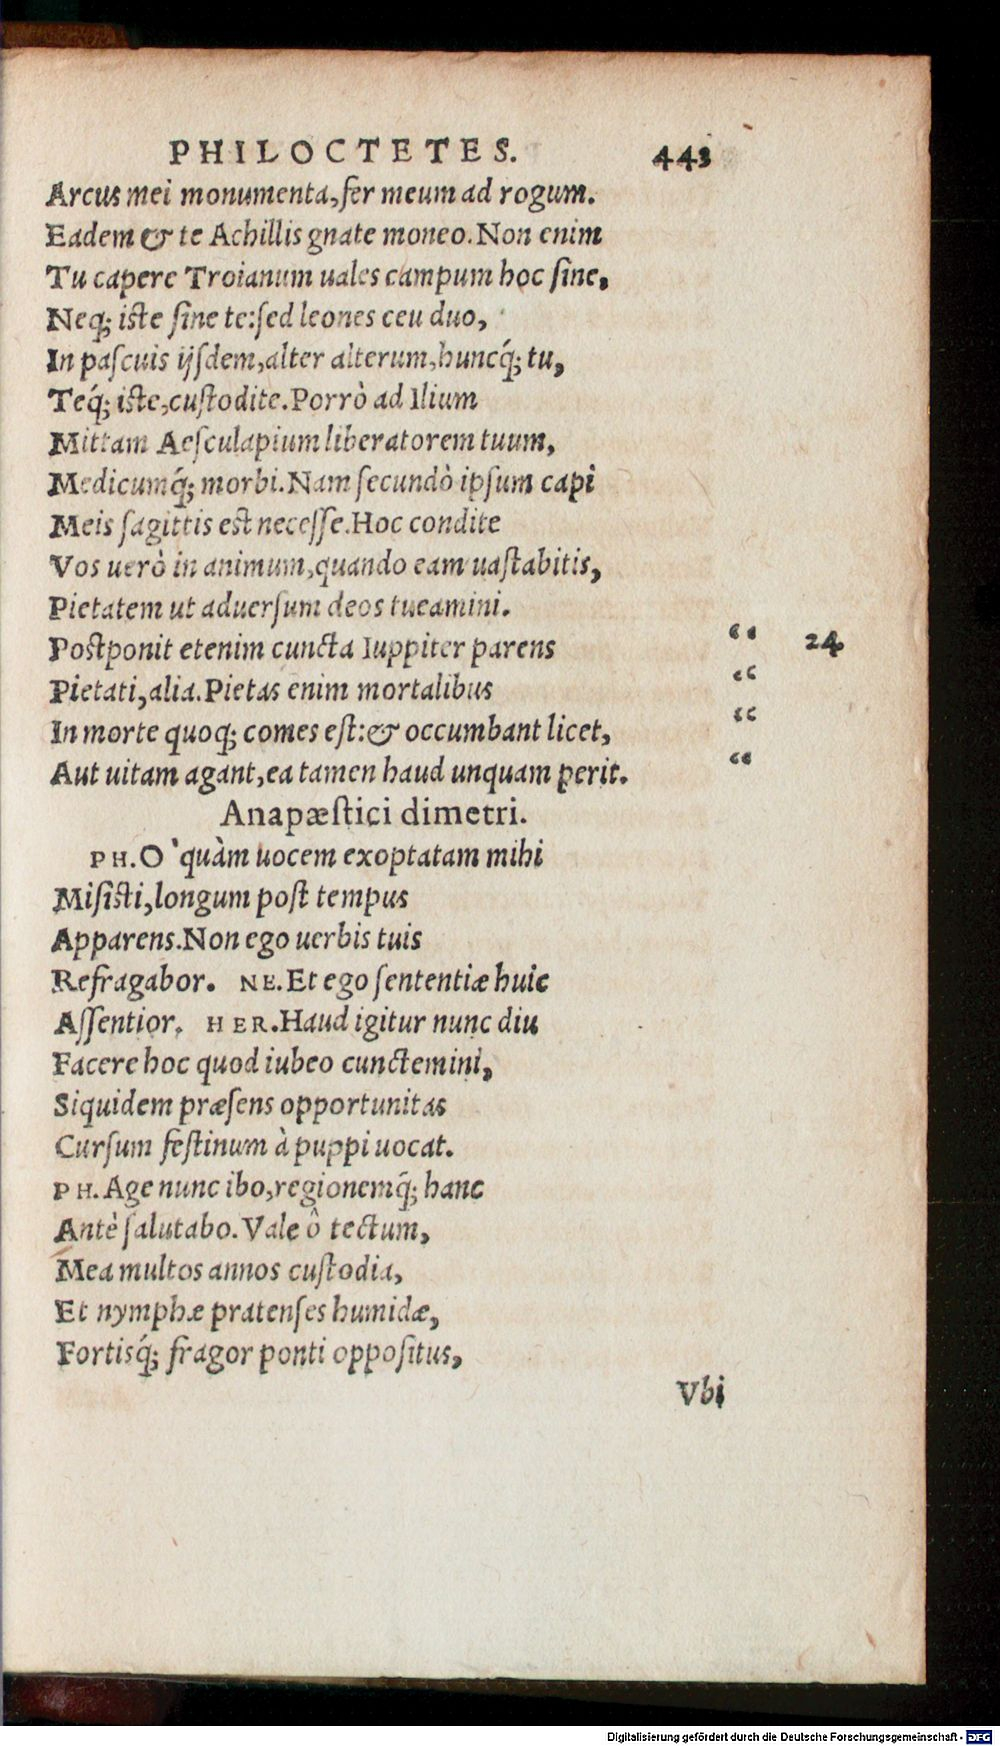 PHILOCTETES. 443
Arcus mei monumenta, fer meum ad rogum.
Eadem & te Achillis gnate moneo. Non enim
Tu capere Troianum uales campum hoc sine,
Neq; iste sine te: sed leones ceu duo,
In pascuis ijsdem, alter alterum, huncq́; tu,
Teq́; iste, custodite. Porrò ad Ilium
Mittam Aesculapium liberatorem tuum,
Medicumq́; morbi. Nam secundò ipsum capi
Meis sagittis est necesse. Hoc condite
Vos uerò in animum, quando eam uastabitis,
Pietatem ut aduersum deos tueamini.
Postponit etenim cuncta Iuppiter parens “ 24
Pietati, alia. Pietas enim mortalibus “
In morte quoq; comes est: & occumbant licet, “
Aut uitam agant, ea tamen haud unquam perit. “
Anapæstici dimetri.
PH. O ̀ quàm uocem exoptatam mihi
Misisti, longum post tempus
Apparens. Non ego uerbis tuis
Refragabor. NE. Et ego sententiæ huic
Assentior. HER. Haud igitur nunc diu
Facere hoc quod iubeo cunctemini,
Siquidem præsens opportunitas
Cursum festinum à puppi uocat.
PH. Age nunc ibo, regionemq́; hanc
Antè salutabo. Vale ô tectum,
Mea multos annos custodia,
Et nymphæ pratenses humidæ,
Fortisq́; fragor ponti oppositus,
Vbi
Digitalisierung gefördert durch die Deutsche Forschungsgemeinschaft - DFG